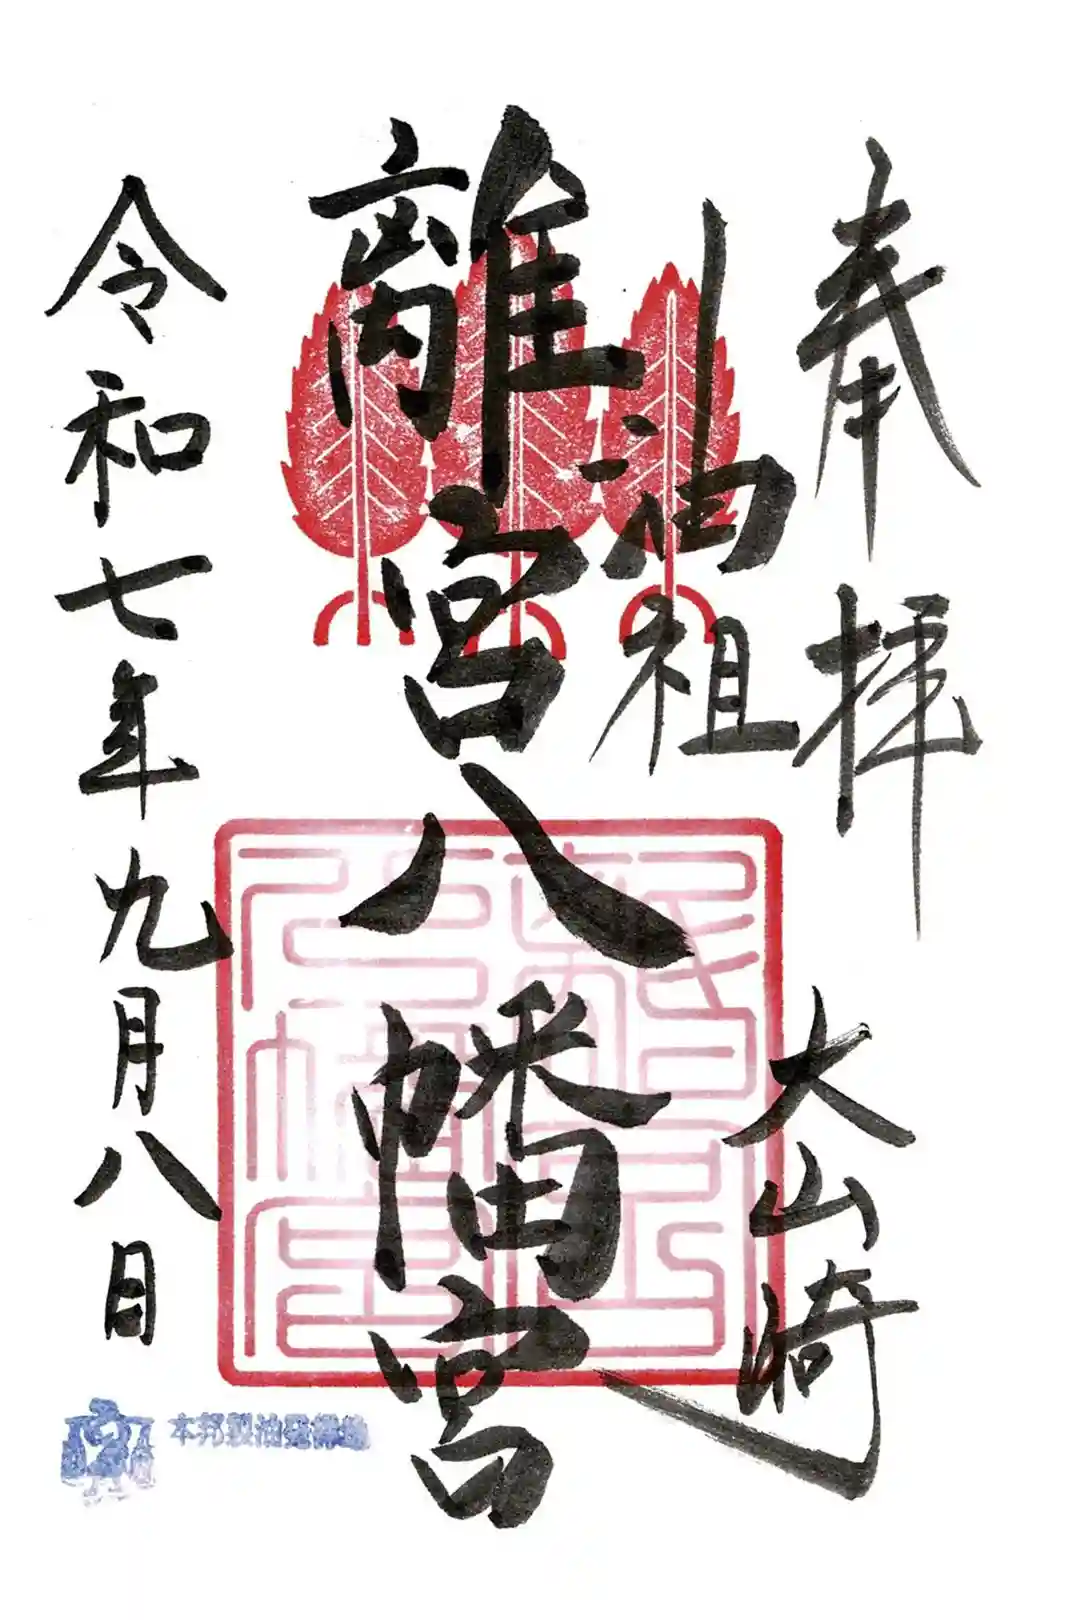 奉拝
大山崎
油祖
離宮八幡宮
令和七年九月八日
本邦製油発祥地